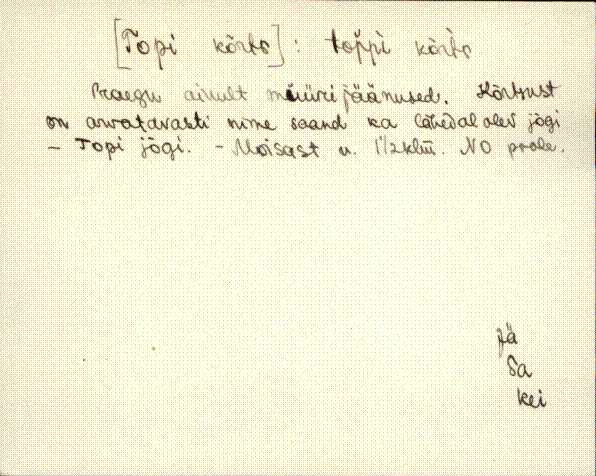 [Topi kõrts] : toppì kõrts
Praegu ainult müürijäänused. Kõrtsust
on arvatavasti nime saand ka lähedal olev jõgi
– Topi jõgi. – Mõisast u. 1½ klm. NO
Jä
Sa
kei